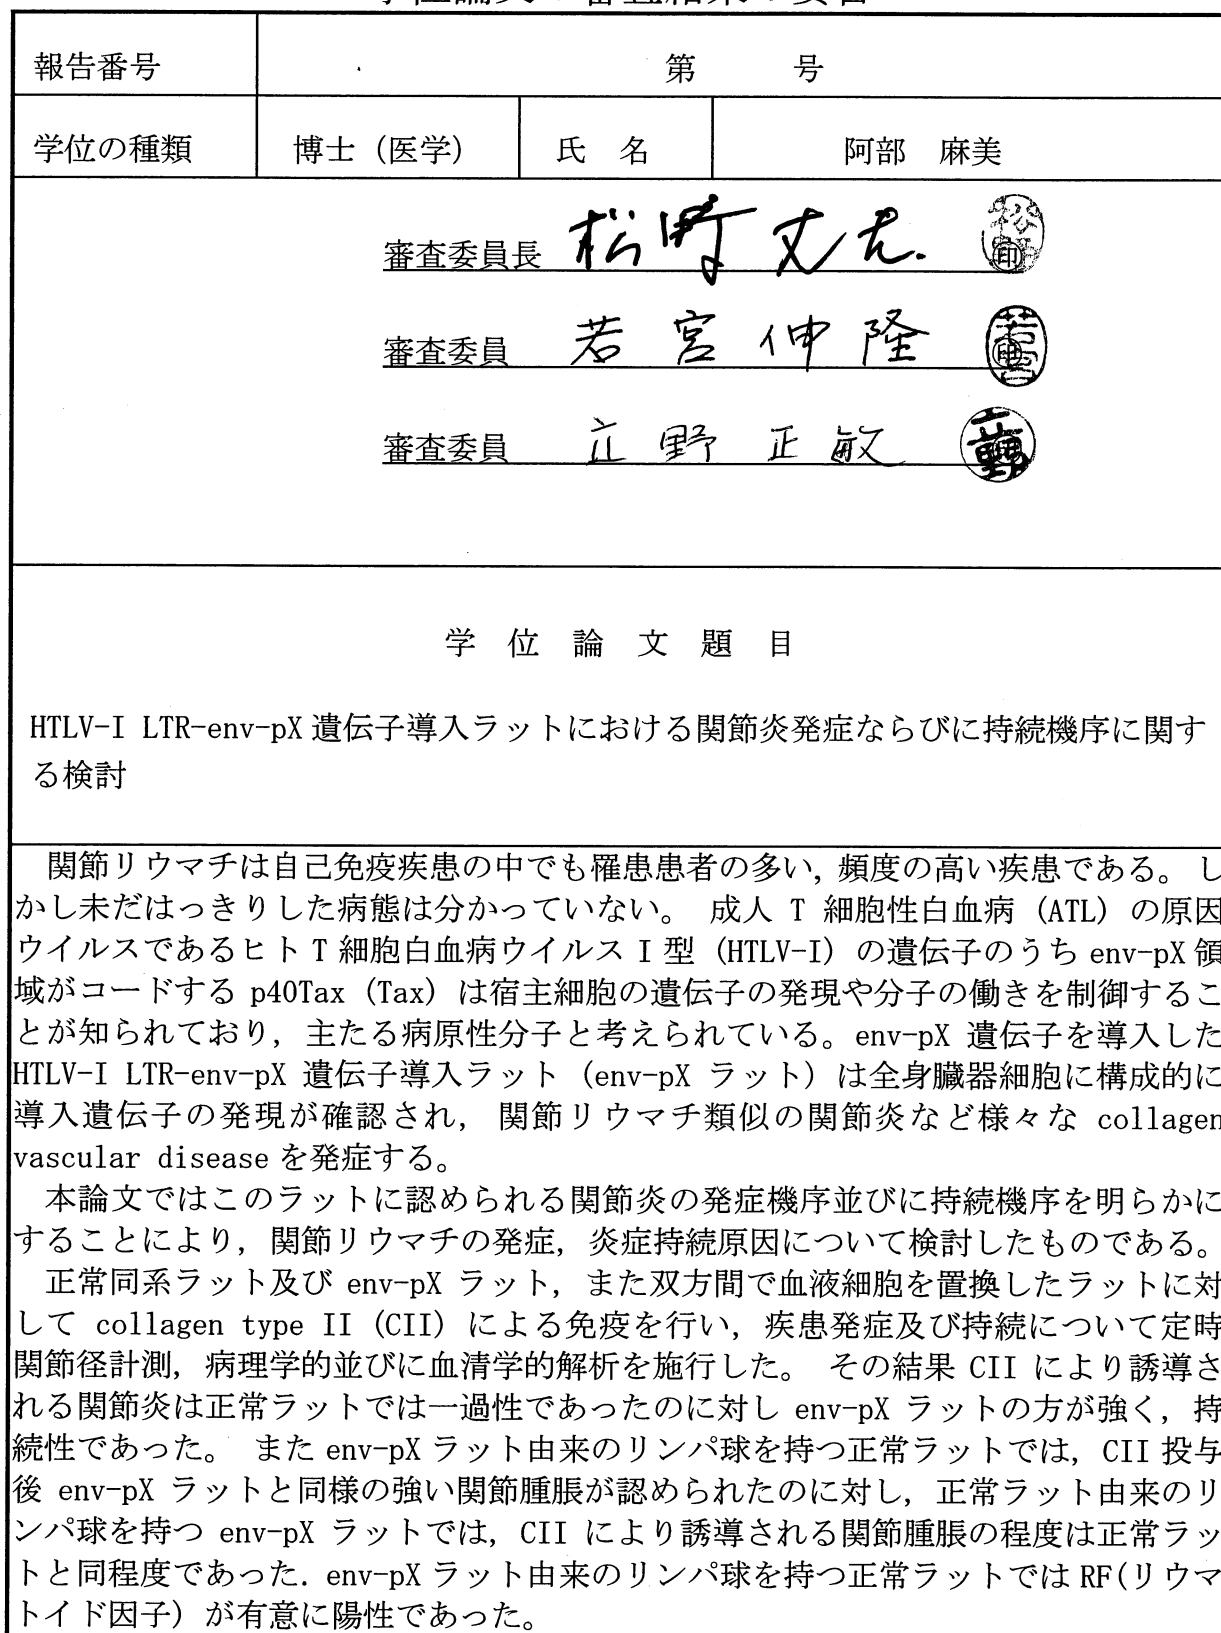 学位論文の審査結果の要旨
報告番号 第 号
学位の種類 博士（医学） 氏 名 阿部 麻美
審査委員長 松野丈夫 印
審査委員 若宮伸隆 印
審査委員 立野正敏
学 位 論 文 題 目
HTLV-I LTR-env-pX 遺伝子導入ラットにおける関節炎発症ならびに持続機序に関す
る検討
関節リウマチは自己免疫疾患の中でも罹患患者の多い, 頻度の高い疾患である。 し
かし未だはっきりした病態は分かっていない。 成人 T 細胞性白血病 (ATL) の原因
ウイルスであるヒト T 細胞白血病ウイルス I 型 (HTLV-I) の遺伝子のうち env-pX 領
域がコードする p40Tax (Tax) は宿主細胞の遺伝子の発現や分子の働きを制御するこ
とが知られており, 主たる病原性分子と考えられている。env-pX 遺伝子を導入した
HTLV-I LTR-env-pX 遺伝子導入ラット (env-pX ラット) は全身臓器細胞に構成的に
導入遺伝子の発現が確認され, 関節リウマチ類似の関節炎など様々な collagen
vascular disease を発症する。
本論文ではこのラットに認められる関節炎の発症機序並びに持続機序を明らかに
することにより, 関節リウマチの発症, 炎症持続原因について検討したものである。
正常同系ラット及び env-pX ラット, また双方間で血液細胞を置換したラットに対
して collagen type II (CII) による免疫を行い, 疾患発症及び持続について定時
関節径計測, 病理学的並びに血清学的解析を施行した。 その結果 CII により誘導さ
れる関節炎は正常ラットでは一過性であったのに対し env-pX ラットの方が強く, 持
続性であった。 また env-pX ラット由来のリンパ球を持つ正常ラットでは, CII 投与
後 env-pX ラットと同様の強い関節腫脹が認められたのに対し, 正常ラット由来のリ
ンパ球を持つ env-pX ラットでは, CII により誘導される関節腫脹の程度は正常ラッ
トと同程度であった. env-pX ラット由来のリンパ球を持つ正常ラットでは RF(リウマ
トイド因子) が有意に陽性であった。